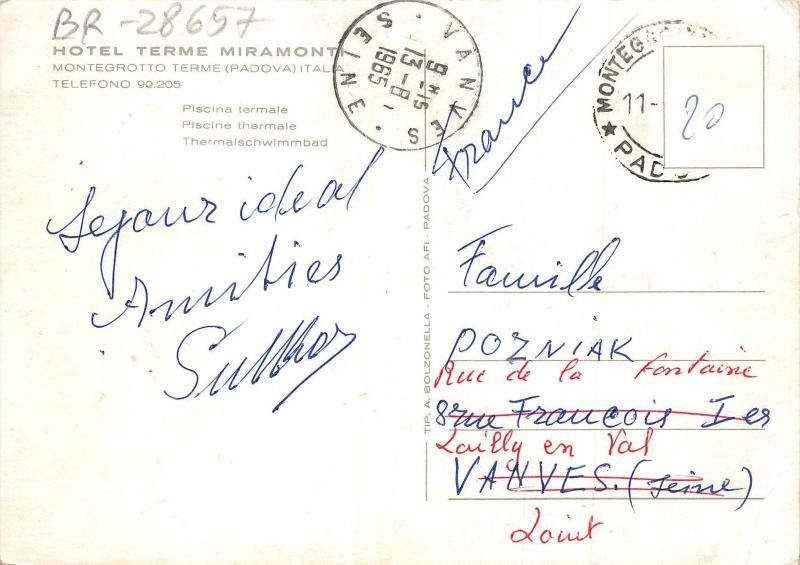 BR-28657
HOTEL TERME MIRAMONTI
MONTEGROTTO TERME (PADOVA) ITALIA
TELEFONO 90.205
Piscina termale
Piscine thermale
Thermalschwimmbad
VANVES
SEINE
9 H 15
13 - 8 -
1965
France
MONTEG
11-
★ PADO
20
Sejour ideal
Amities
TIP. A. BOLZONELLA - FOTO AFI - PADOVA
Famille
POZNIAK
Rue de la Fontaine
8 rue Francois Ier
Lailly en Val
VANVES. (Seine)
Loiret